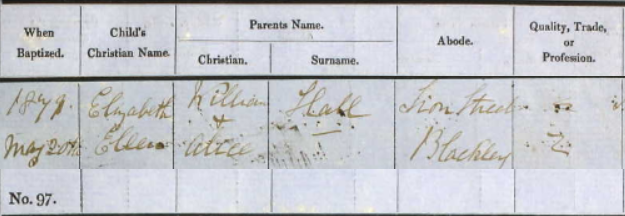 When Baptized. Child's Christian Name. Parents Name. Abode. Quality, Trade, or Profession.
Christian. Surname.
1879. Elizabeth William Hall Lion Street
&
May 20th Ellen Alice — Blackley
No. 97.